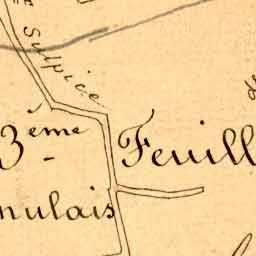 Sulpice
3ème Feuill
nulais